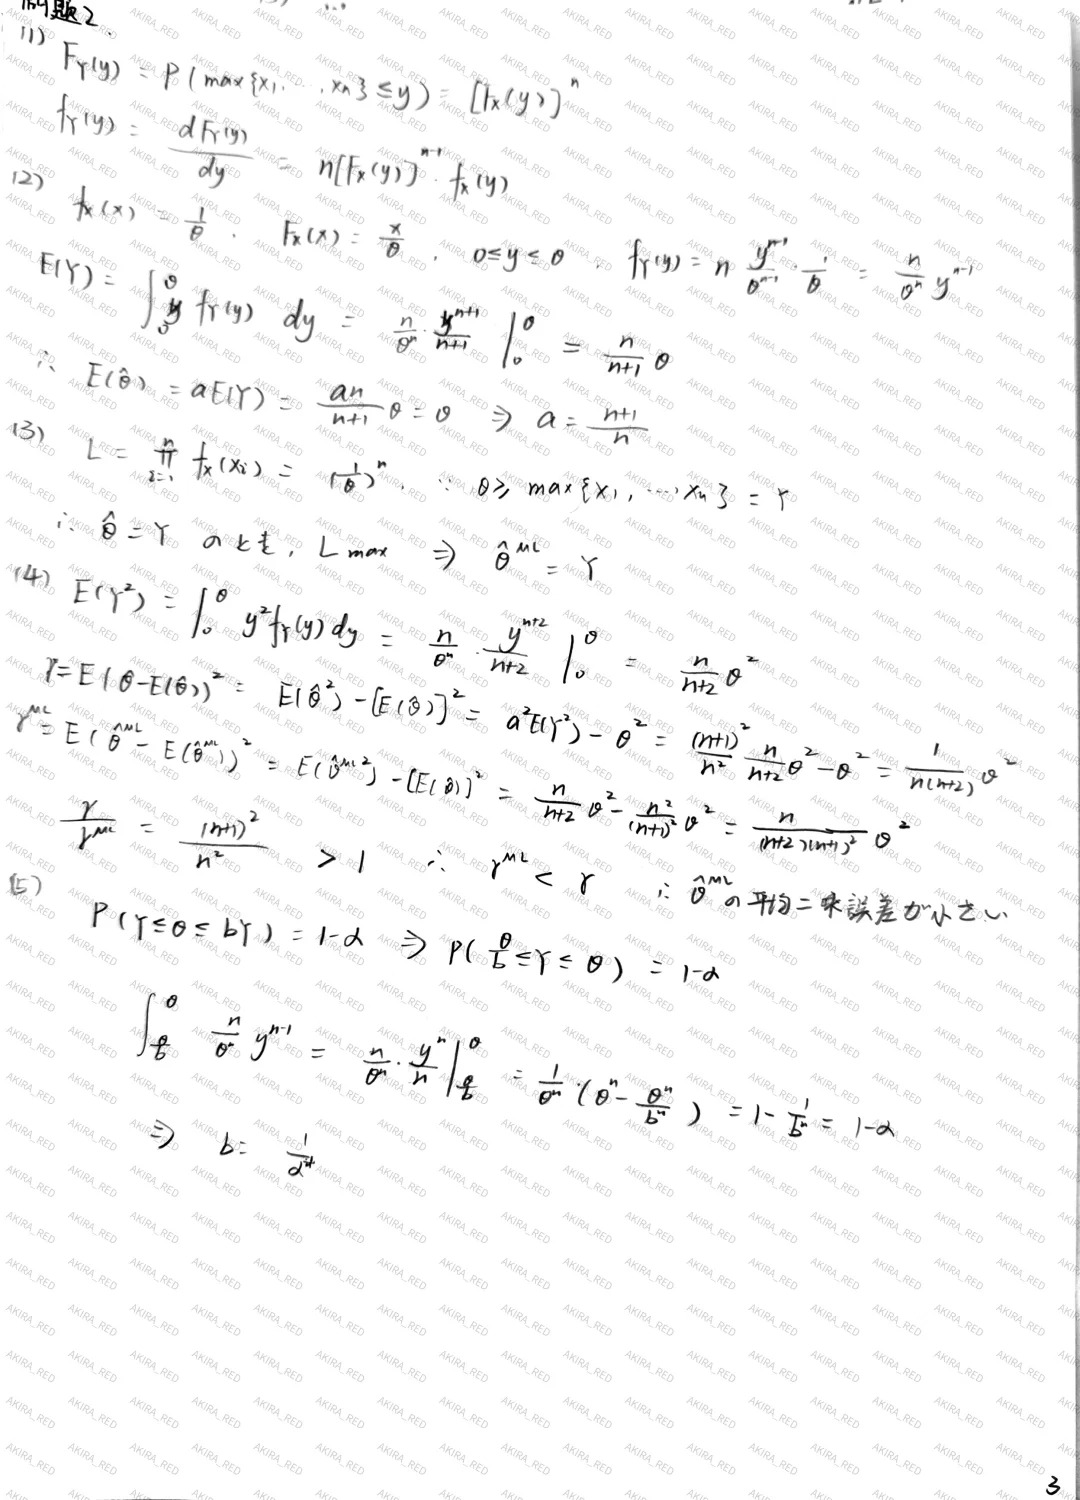 問題2.
(1) F_Y(y) = P(max{X₁, ..., Xₙ} ≤ y) = [F_X(y)]^n
f_Y(y) = dF_Y(y)/dy = n[F_X(y)]^{n-1} · f_X(y)
(2) f_X(x) = 1/θ . F_X(x) = x/θ . 0≤y≤θ . f_Y(y) = n y^{n-1}/θ^{n-1} · 1/θ = n/θ^n y^{n-1}
E(Y) = ∫₀^θ y f_Y(y) dy = n/θ^n · y^{n+1}/(n+1) |₀^θ = n/(n+1) θ
∴ E(θ̂) = aE(Y) = an/(n+1) θ = θ ⇒ a = (n+1)/n
(3) L = ∏_{i=1}^n f_X(x_i) = (1/θ)^n . ∵ θ ≥ max{X₁, ..., Xₙ} = Y
∴ θ̂ = Y のとき, L max ⇒ θ̂^{ML} = Y
(4) E(Y²) = ∫₀^θ y² f_Y(y) dy = n/θ^n · y^{n+2}/(n+2) |₀^θ = n/(n+2) θ²
γ = E(θ-E(θ̂))² = E(θ̂²) - [E(θ̂)]² = a²E(Y²) - θ² = (n+1)²/n² n/(n+2) θ² - θ² = 1/(n(n+2)) θ²
γ^{ML} = E(θ̂^{ML} - E(θ̂^{ML}))² = E(θ̂^{ML 2}) - [E(θ̂)]² = n/(n+2) θ² - n²/(n+1)² θ² = n/((n+2)(n+1)²) θ²
γ/γ^{ML} = (n+1)²/n² > 1 ∴ γ^{ML} < γ ∴ θ̂^{ML}の平均二乗誤差が小さい
(5) P(Y ≤ θ ≤ bY) = 1-α ⇒ P(θ/b ≤ Y ≤ θ) = 1-α
∫_{θ/b}^θ n/θ^n y^{n-1} = n/θ^n · y^n/n |_{θ/b}^θ = 1/θ^n · (θ^n - θ^n/b^n) = 1 - 1/b^n = 1-α
⇒ b =
3
AKIRA_RED